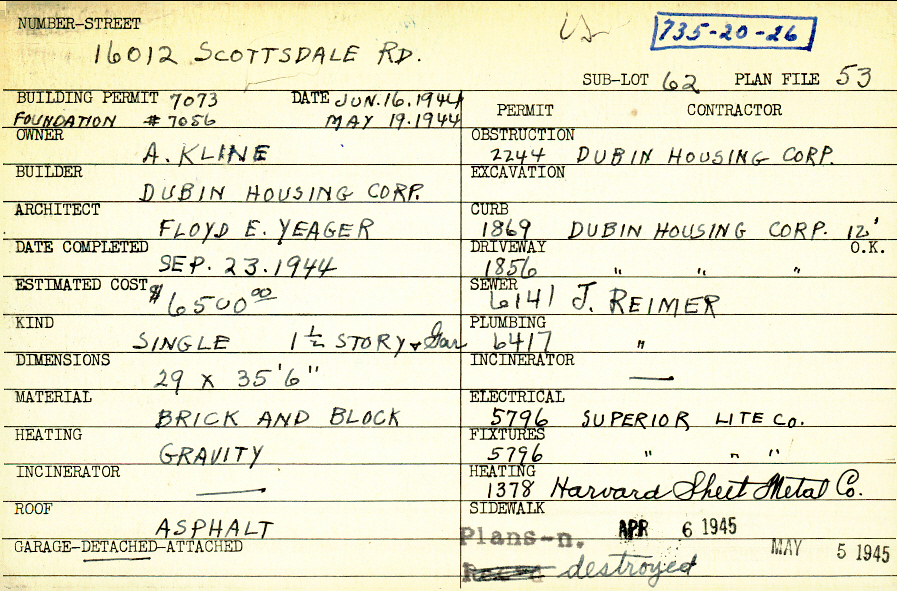 NUMBER-STREET
735-20-26
16012 SCOTTSDALE RD.
SUB-LOT 62 PLAN FILE 53
BUILDING PERMIT 7073 DATE JUN.16.1944
FOUNDATION #7056 MAY 19.1944
OWNER
A. KLINE
BUILDER
DUBIN HOUSING CORP.
ARCHITECT
FLOYD E. YEAGER
DATE COMPLETED
SEP. 23.1944
ESTIMATED COST
$6500.00
KIND
SINGLE 1 1/2 STORY & Gar
DIMENSIONS
29 X 35'6"
MATERIAL
BRICK AND BLOCK
HEATING
GRAVITY
INCINERATOR
—
ROOF
ASPHALT
GARAGE-DETACHED-ATTACHED
PERMIT CONTRACTOR
OBSTRUCTION
2244 DUBIN HOUSING CORP.
EXCAVATION
CURB
1869 DUBIN HOUSING CORP. 12'
DRIVEWAY O.K.
1856 " " "
SEWER
6141 J. REIMER
PLUMBING
6417 "
INCINERATOR
—
ELECTRICAL
5796 SUPERIOR LITE CO.
FIXTURES
5796 " " "
HEATING
1378 Harvard Sheet Metal Co.
SIDEWALK
APR 6 1945
Plans-n.
MAY 5 1945
destroyed